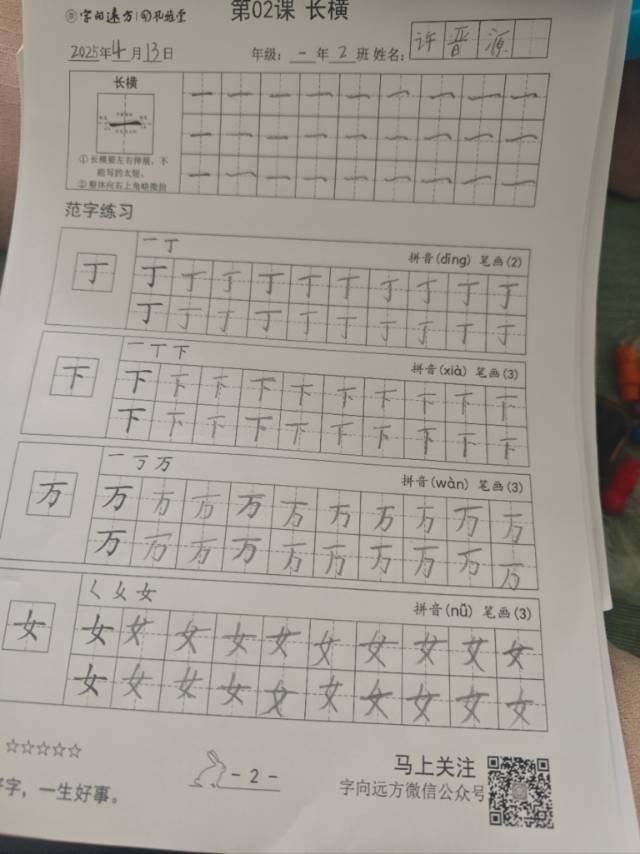 字向远方
第02课 长横
2025年4月13日 年级：一年2班 姓名：许晋源
长横
①长横要左右伸展，不
能写的太短。
②整体向右上角略微抬
范字练习
一 丁 拼音(dīng) 笔画(2)
丁 丁 丁 丁 丁 丁 丁 丁 丁 丁 丁
丁 丁 丁 丁 丁 丁 丁 丁 丁 丁
一 丅 下 拼音(xià) 笔画(3)
下 下 下 下 下 下 下 下 下 下 下
下 下 下 下 下 下 下 下 下 下
一 丂 万 拼音(wàn) 笔画(3)
万 万 万 万 万 万 万 万 万 万 万
万 万 万 万 万 万 万 万 万 万
拼音(nǚ) 笔画(3)
女 女 女 女 女 女 女 女 女 女 女
女 女 女 女 女 女 女 女 女 女
☆☆☆☆☆
字，一生好事。
- 2 -
马上关注
字向远方微信公众号